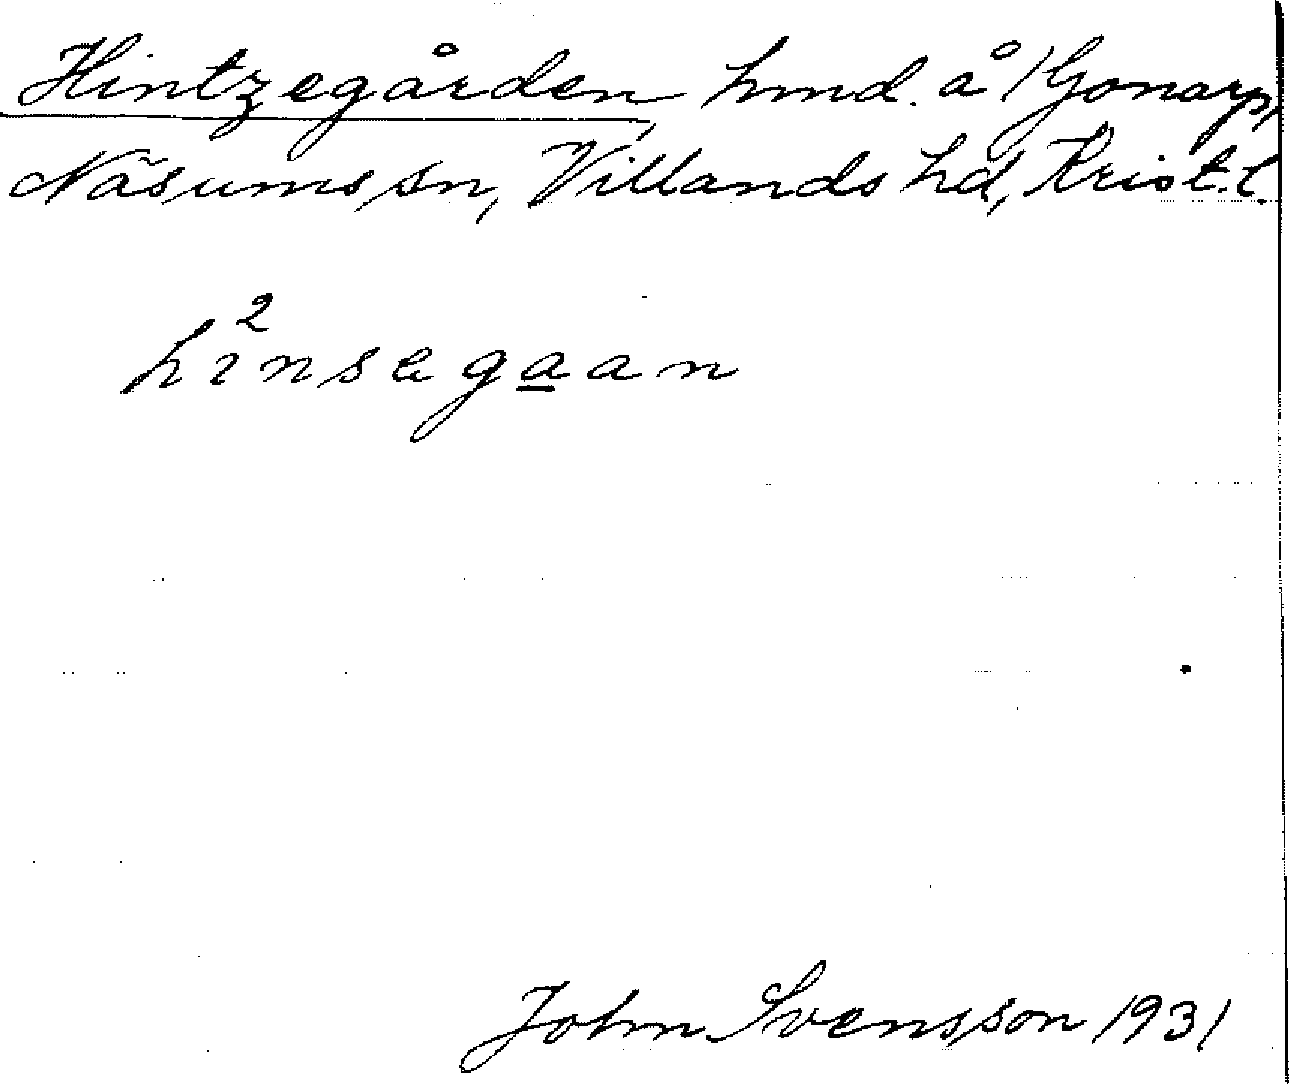 Hintzegården, hmd. å Gonarp,
Näsums sn, Villands hd, Krist. l.
hi²nsegaan
John Svensson 1931